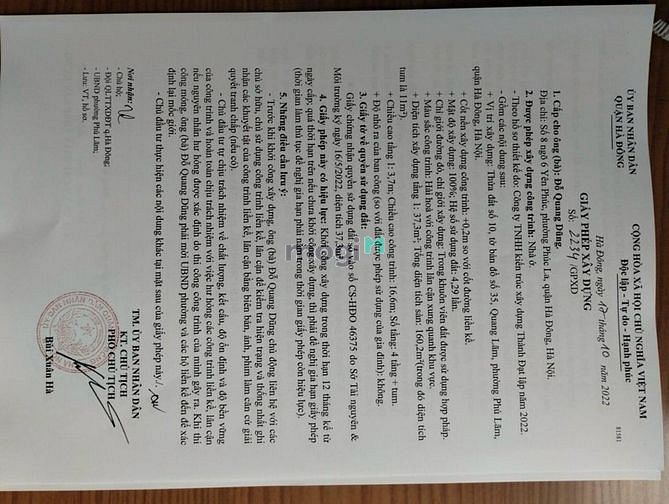 ỦY BAN NHÂN DÂN
QUẬN HÀ ĐÔNG
CỘNG HÒA XÃ HỘI CHỦ NGHĨA VIỆT NAM
Độc lập - Tự do - Hạnh phúc
Hà Đông, ngày 17 tháng 10 năm 2022
GIẤY PHÉP XÂY DỰNG
Số: 2234 /GPXD
1. Cấp cho ông (bà): Đỗ Quang Dũng.
Địa chỉ: Số 8 ngõ 6 Yên Phúc, phường Phúc La, quận Hà Đông, Hà Nội.
2. Được phép xây dựng công trình: Nhà ở.
- Theo hồ sơ thiết kế do: Công ty TNHH kiến trúc xây dựng Thành Đạt lập năm 2022.
- Gồm các nội dung sau:
+ Vị trí xây dựng: Thửa đất số 10, tờ bản đồ số 35, Quang Lãm, phường Phú Lãm,
quận Hà Đông, Hà Nội.
+ Cốt nền xây dựng công trình: +0,2m so với cốt đường liền kề.
+ Mật độ xây dựng: 100%; Hệ số sử dụng đất: 4,29 lần.
+ Chỉ giới đường đỏ, chỉ giới xây dựng: Trong khuôn viên đất được sử dụng hợp pháp.
+ Màu sắc công trình: Hài hoà với công trình lân cận xung quanh khu vực.
+ Diện tích xây dựng tầng 1: 37,3m²; Tổng diện tích sàn: 160,2m²(trong đó diện tích
tum là 11m²).
+ Chiều cao tầng 1: 3,7m; Chiều cao công trình: 16,6m; Số tầng: 4 tầng + tum.
+ Độ nhô ra của ban công (so với đất được phép sử dụng của gia đình): không.
3. Giấy tờ về quyền sử dụng đất:
Giấy chứng nhận quyền sử dụng đất số vào sổ CS-HĐO 46375 do Sở Tài nguyên &
Môi trường ký ngày 16/5/2022, diện tích 37,3m².
4. Giấy phép này có hiệu lực: Khởi công xây dựng trong thời hạn 12 tháng kể từ
ngày cấp; quá thời hạn trên nếu chưa khởi công xây dựng, thì phải đề nghị gia hạn giấy phép
(thời gian làm thủ tục đề nghị gia hạn phải nằm trong thời gian giấy phép còn hiệu lực).
5. Những điều cần lưu ý:
- Trước khi khởi công xây dựng, ông (bà) Đỗ Quang Dũng chủ động liên hệ với các
chủ sở hữu, chủ sử dụng công trình liền kề, lân cận để kiểm tra hiện trạng và thống nhất ghi
nhận các khuyết tật của công trình liền kề, lân cận bằng biên bản, ảnh, phim làm căn cứ giải
quyết tranh chấp (nếu có).
- Chủ đầu tư tự chịu trách nhiệm về chất lượng, kết cấu, độ ổn định và độ bền vững
của công trình và hoàn toàn chịu trách nhiệm với việc hư hỏng các công trình liền kề, lân cận
nếu nguyên nhân hư hỏng được xác định do thi công công trình của mình gây ra. Khi thi
công móng, ông (bà) Đỗ Quang Dũng phải mời UBND phường và các hộ liền kề đến để xác
định lại mốc giới.
- Chủ đầu tư thực hiện các nội dung khác tại mặt sau của giấy phép này./.
Nơi nhận:
- Chủ hộ;
- Đội QLTTXDĐT q.Hà Đông;
- UBND phường Phú Lãm;
- Lưu: VT, hồ sơ.
TM. ỦY BAN NHÂN DÂN
KT. CHỦ TỊCH
PHÓ CHỦ TỊCH
Bùi Xuân Hà
mogi